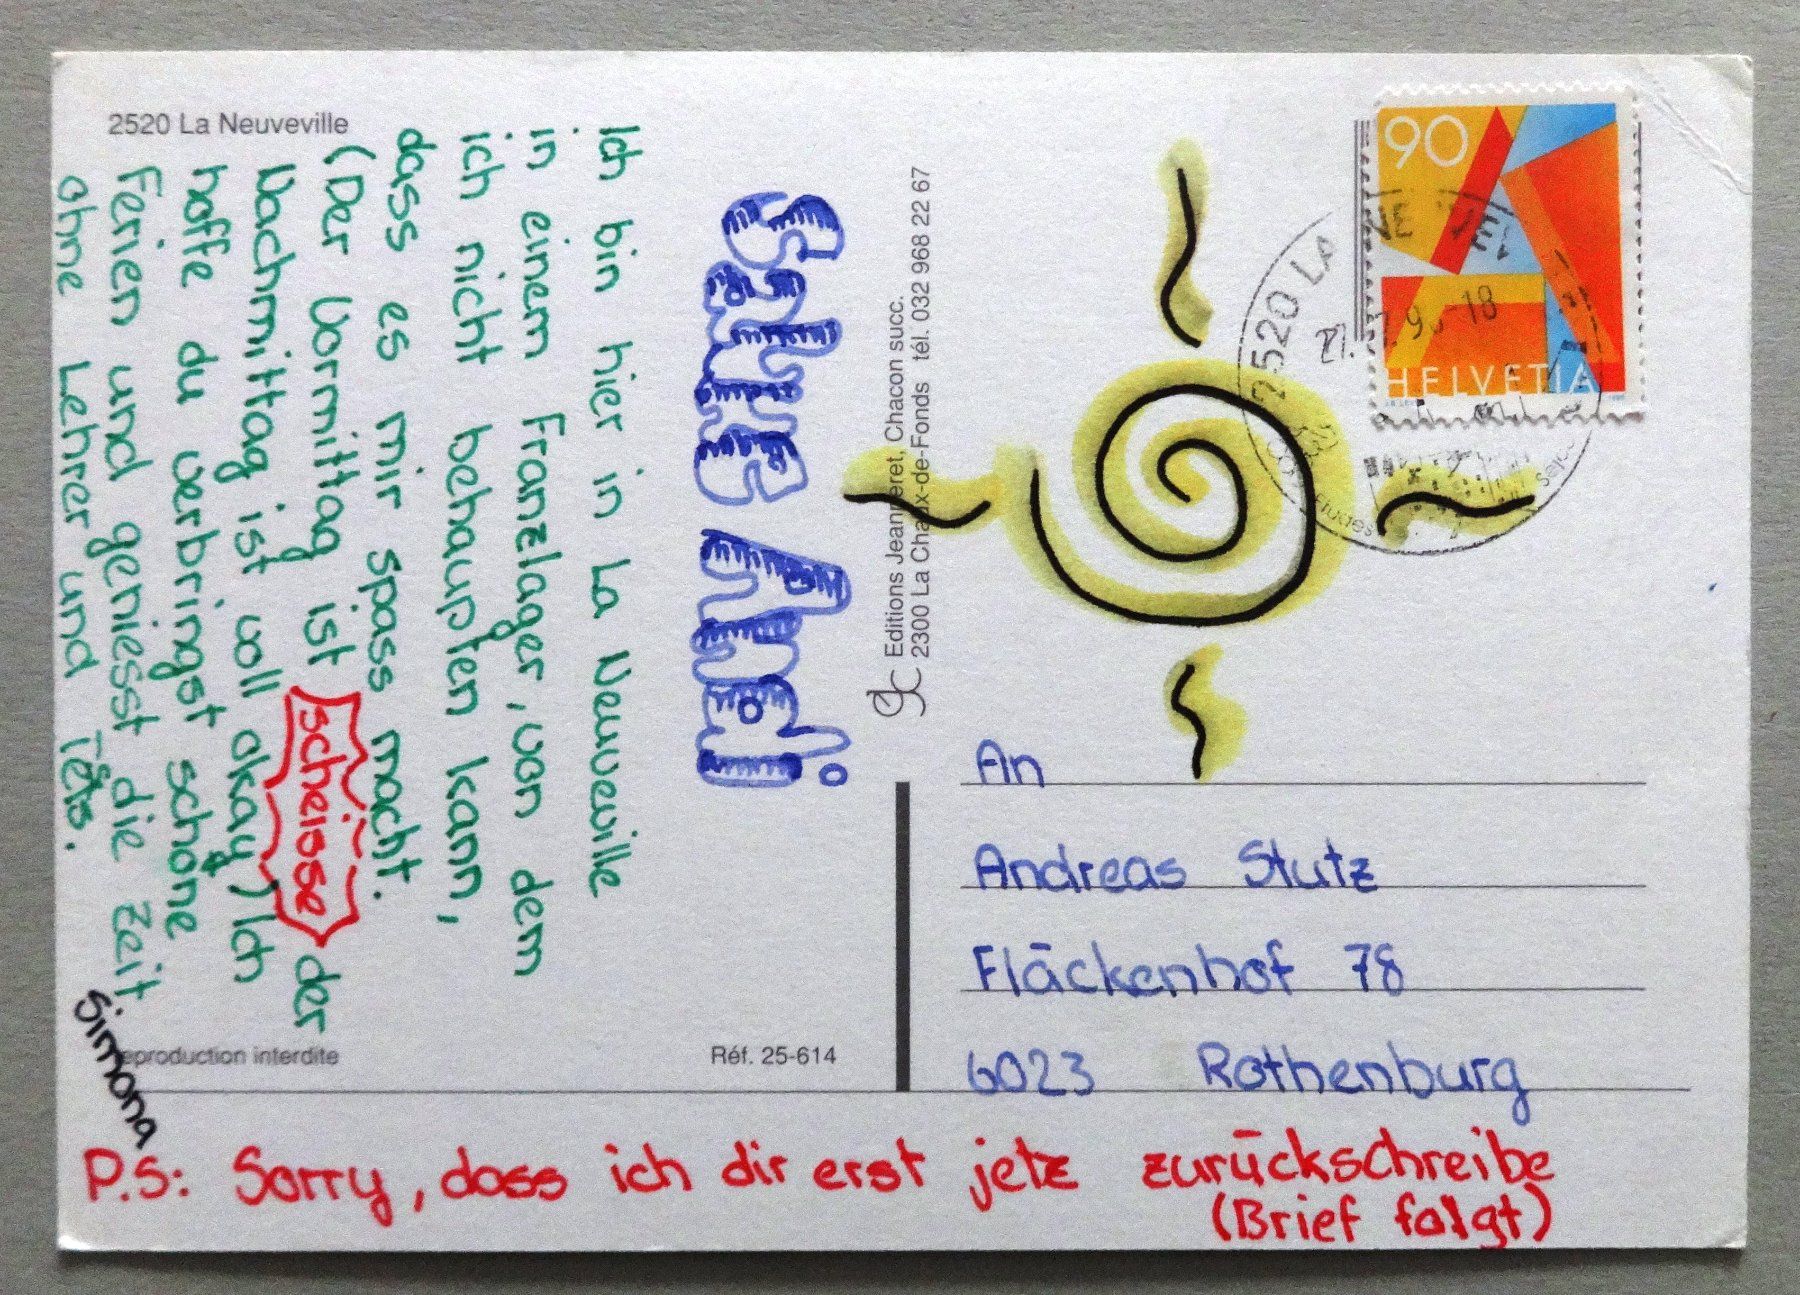 2520 La Neuveville
Salü Andi
Ich bin hier in La Neuveville
in einem Franzlager, von dem
ich nicht behaupten kann,
dass es mir spass macht.
(Der Vormittag ist scheisse der
Nachmittag ist voll okay) Ich
hoffe du verbringst schöne
Ferien und geniesst die Zeit
ohne Lehrer und Tests.
Simona
eproduction interdite
Réf. 25-614
Editions Jeanneret, Chacon succ.
2300 La Chaux-de-Fonds tél. 032 968 22 67
90
HELVETIA
2520 LA
-18
An
Andreas Stutz
Fläckenhof 78
6023 Rothenburg
P.S: Sorry, dass ich dir erst jetz zurückschreibe
(Brief folgt)